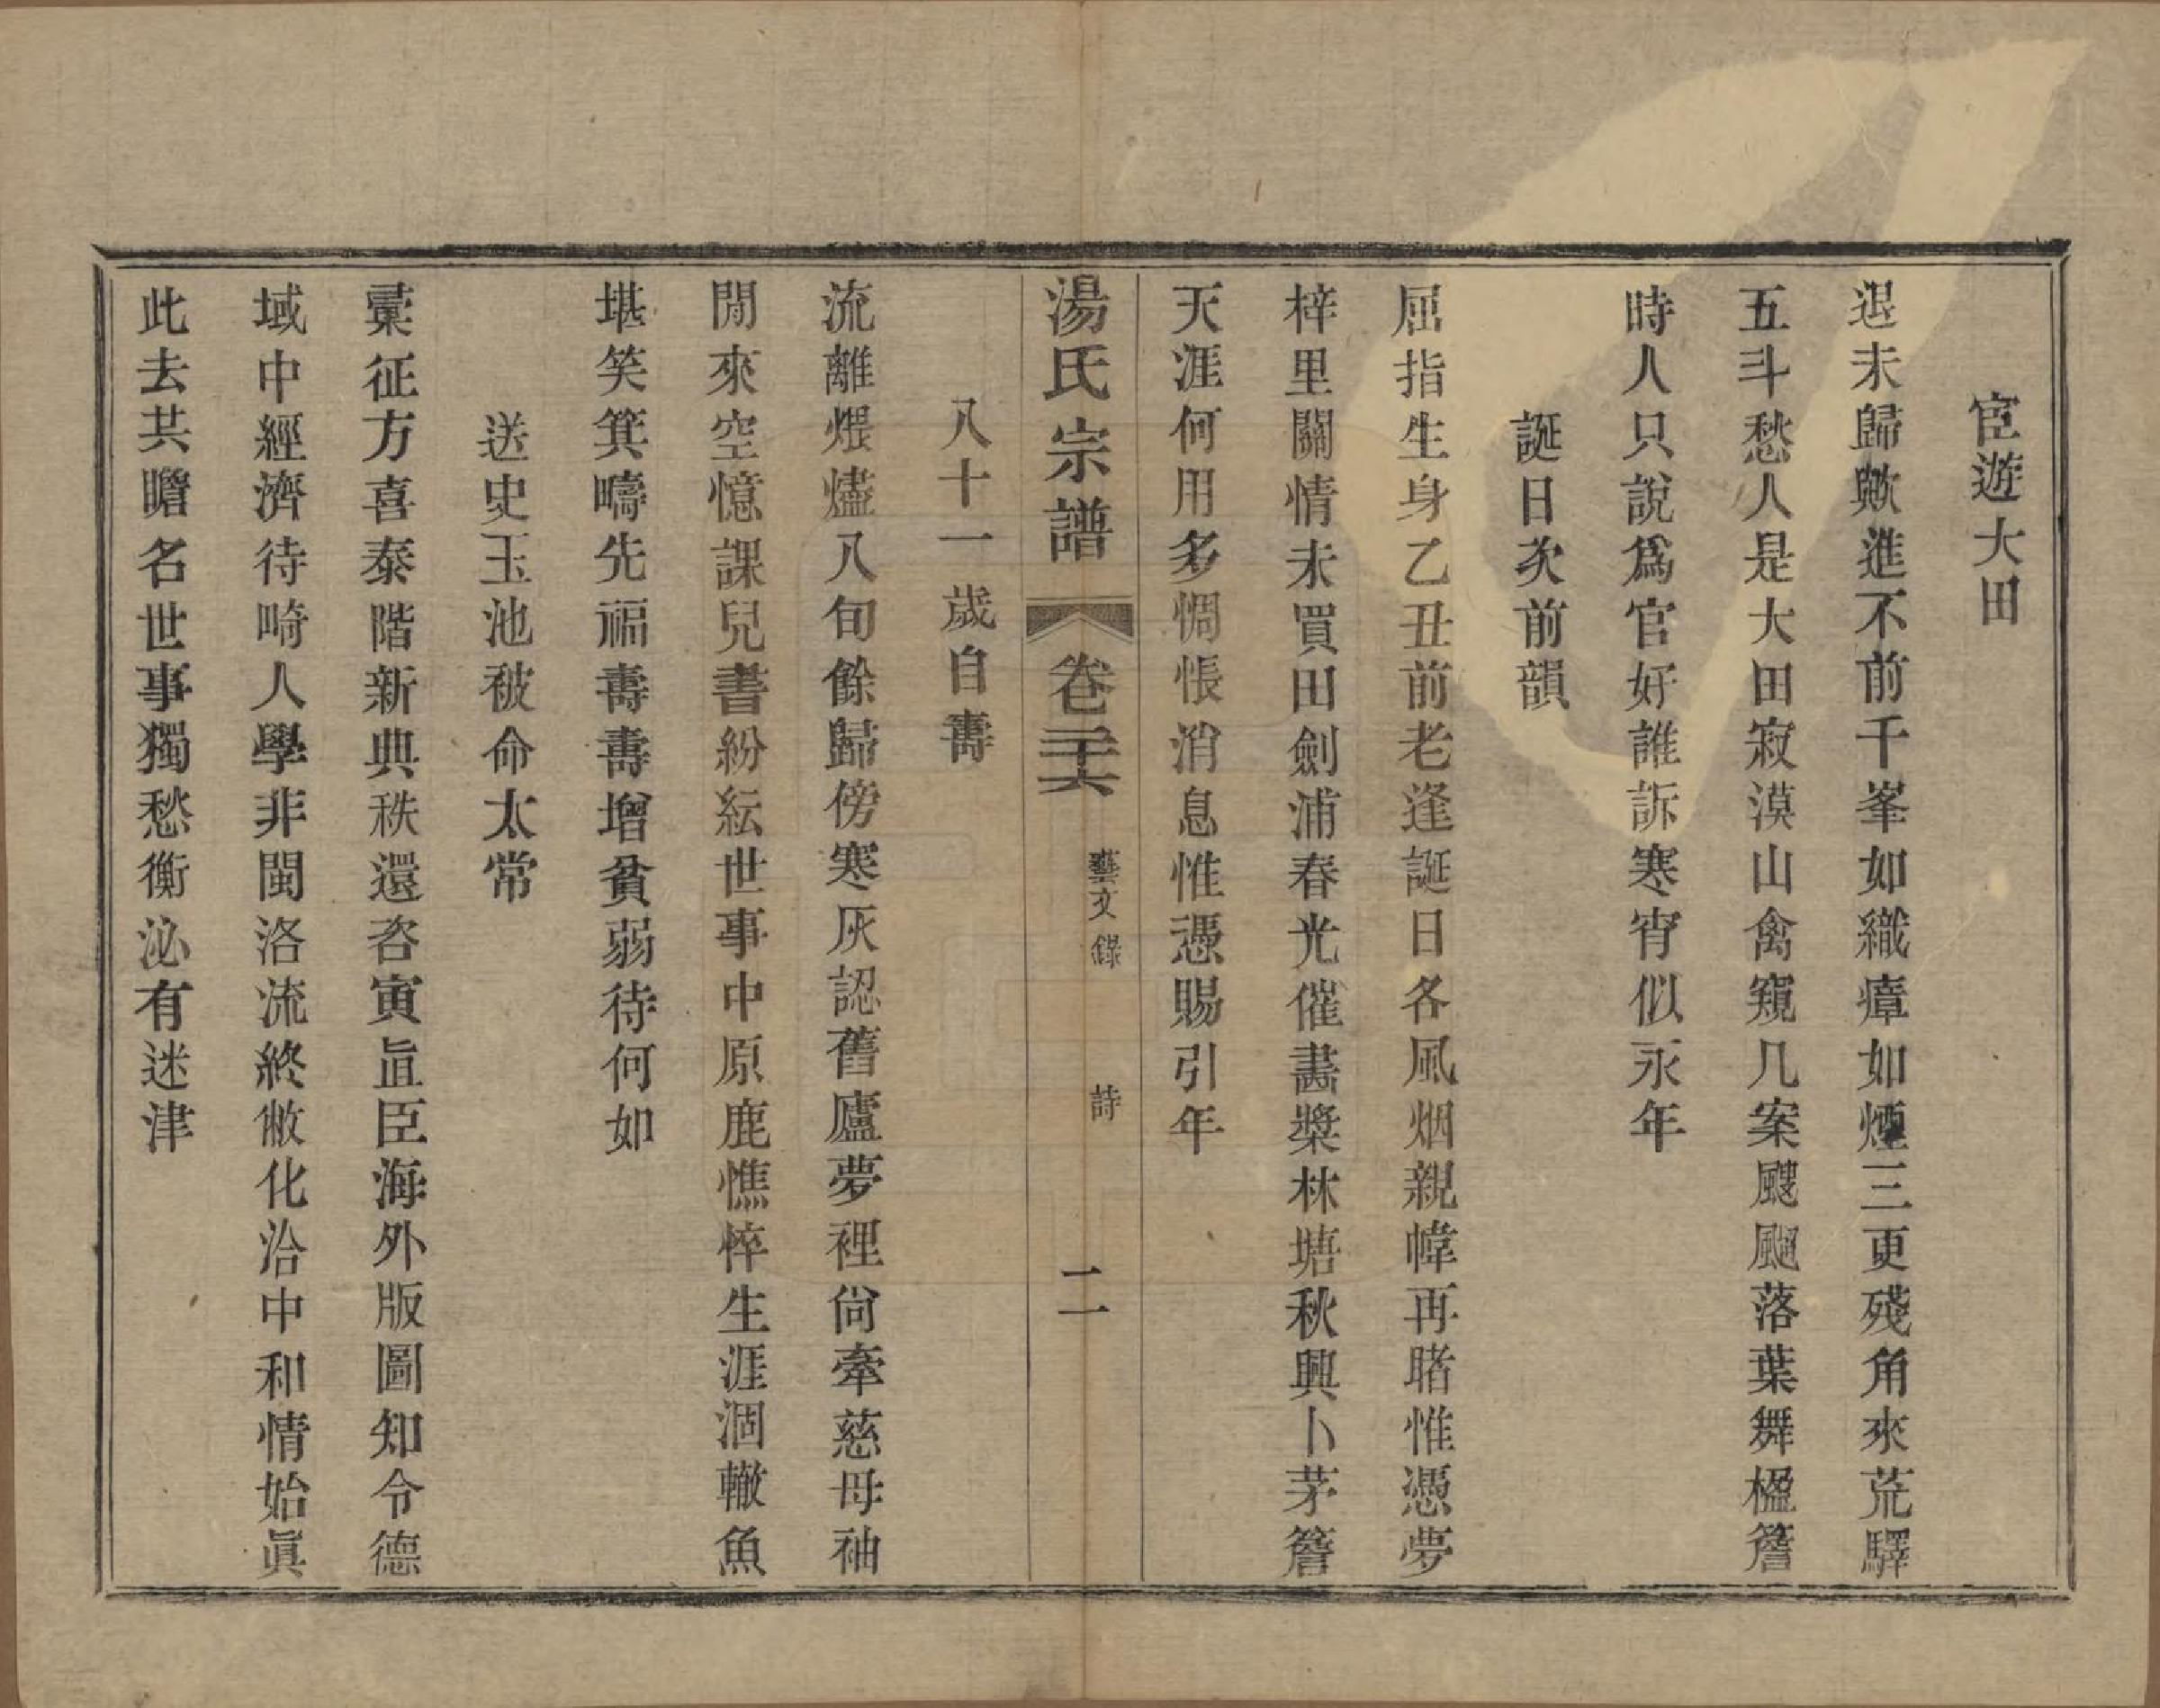 宦遊大田
退未歸歟進不前千峯如織瘴如煙三更殘角來荒驛
五斗愁人是大田寂漠山禽窺几案颼飀落葉舞楹簷
時人只說爲官好誰訴寒宵似永年
誕日次前韻
屈指生身乙丑前老逢誕日各風烟親幃再睹惟憑夢
梓里關情未買田劍浦春光催畵槳林塘秋興卜茅簷
天涯何用多惆悵消息惟憑賜引年
湯氏宗譜
卷二十六
藝文錄
詩
二
八十一歲自壽
流離煨燼八旬餘歸傍寒灰認舊廬夢裡尙牽慈母袖
閒來空憶課兒書紛紜世事中原鹿憔悴生涯涸轍魚
堪笑箕疇先福壽壽增貧弱待何如
送史玉池被命太常
彙征方喜泰階新典秩還咨寅直臣海外版圖知令德
域中經濟待畸人學非閩洛流終敝化洽中和情始眞
此去共瞻名世事獨愁衡泌有迷津